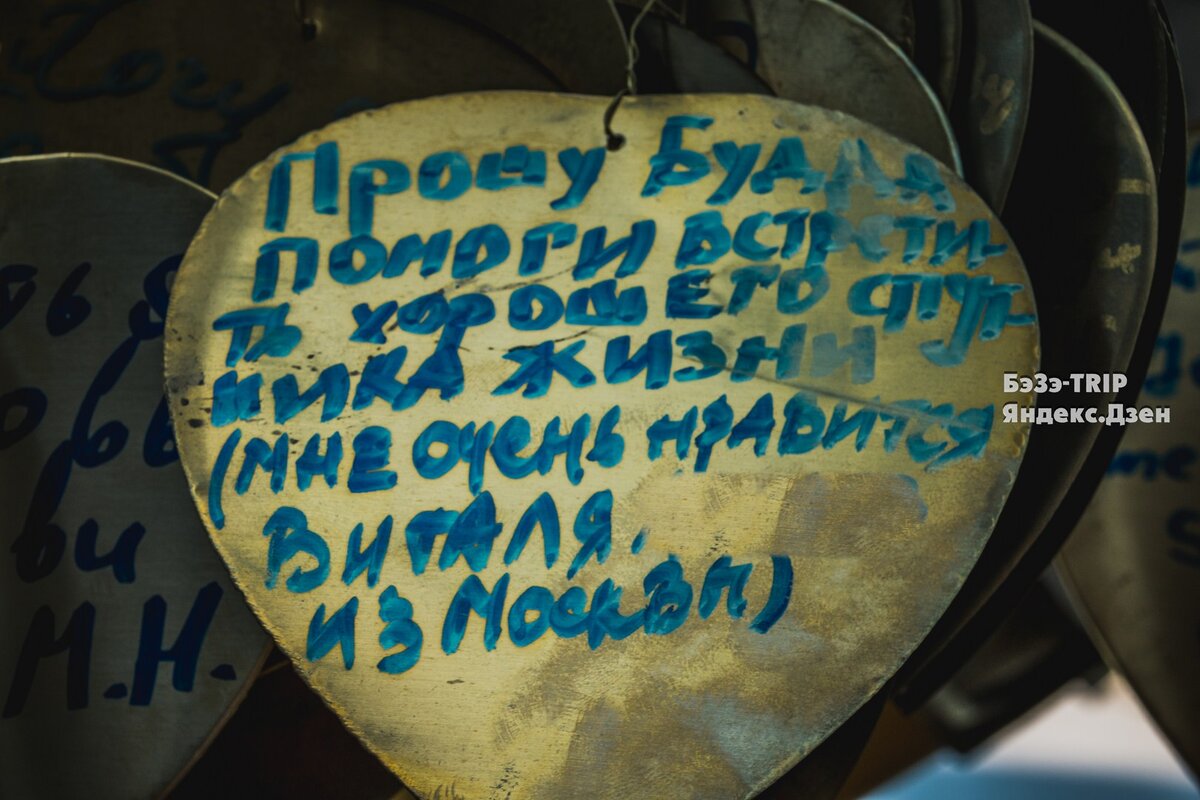 Хочу
Прошу Будда
помоги встрети-
ть хорошего спут-
ника жизни
(мне очень нравится
Виталя.
из Москвы)
ви
М.Н.
БэЗэ-TRIP
Яндекс.Дзен